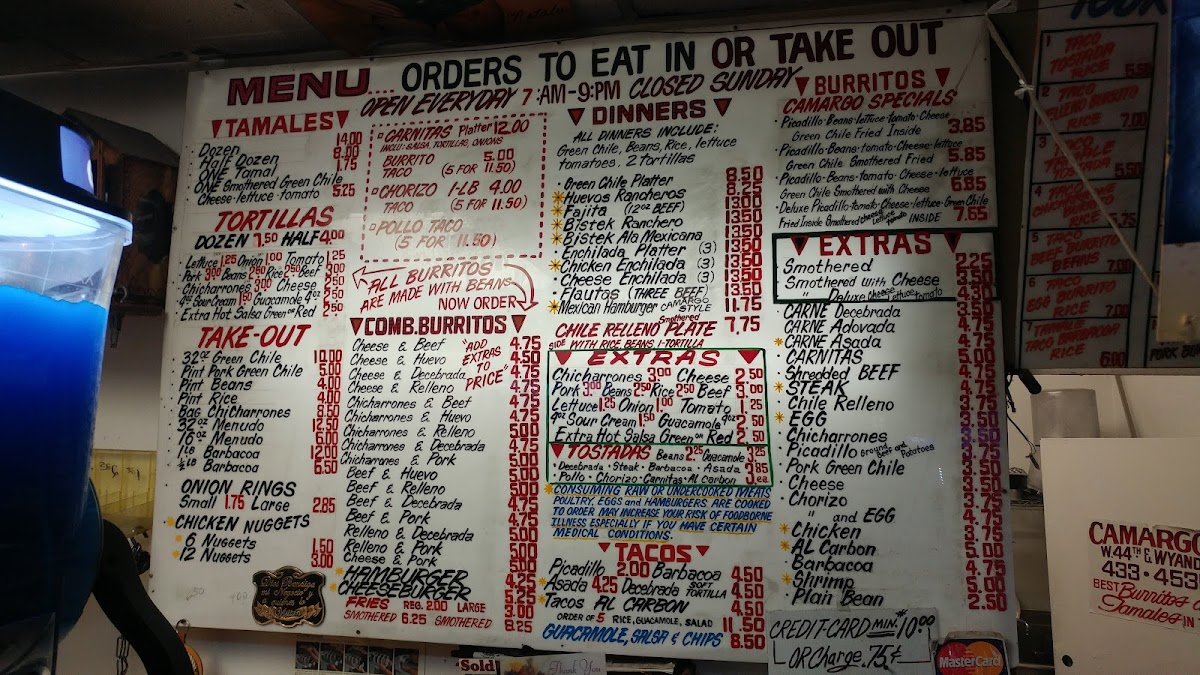 MENU... ORDERS TO EAT IN OR TAKE OUT
OPEN EVERYDAY 7:AM-9:PM CLOSED SUNDAY
TAMALES
Dozen 14.00
Half Dozen 8.00
ONE Tamal 1.75
ONE Smothered Green Chile
Cheese-lettuce-tomato 5.25
TORTILLAS
DOZEN 7.50 HALF 4.00
Lettuce 1.25 Onion 1.00 Tomato 1.25
Pork 3.00 Beans 2.50 Rice 2.50 Beef 3.00
Chicharrones 3.00 Cheese 2.50
4oz Sour Cream 1.50 Guacamole 4oz 2.50
Extra Hot Salsa Green or Red 2.50
TAKE-OUT
32oz Green Chile 10.00
Pint Pork Green Chile 5.00
Pint Beans 4.00
Pint Rice 4.00
Bag Chicharrones 8.50
32oz Menudo 12.50
16oz Menudo 6.00
1LB Barbacoa 12.00
½LB Barbacoa 6.50
ONION RINGS
Small 1.75 Large 2.85
CHICKEN NUGGETS
6 Nuggets 1.50
12 Nuggets 3.00
CARNITAS Platter 12.00
INCLU: SALSA, TORTILLAS, ONIONS
BURRITO 5.00
TACO (5 FOR 11.50)
CHORIZO 1-LB 4.00
TACO (5 FOR 11.50)
POLLO TACO
(5 FOR 11.50)
ALL BURRITOS
ARE MADE WITH BEANS
NOW ORDER
COMB. BURRITOS
"ADD EXTRAS TO PRICE"
Cheese & Beef 4.75
Cheese & Huevo 4.50
Cheese & Decebrada 4.75
Cheese & Relleno 4.75
Chicharrones & Beef 4.75
Chicharrones & Huevo 4.75
Chicharrones & Relleno 5.00
Chicharrones & Decebrada 4.75
Chicharrones & Pork 5.00
Beef & Huevo 5.00
Beef & Relleno 5.00
Beef & Decebrada 4.75
Beef & Pork 4.75
Relleno & Decebrada 5.00
Relleno & Pork 5.00
Cheese & Pork 5.00
HAMBURGER 4.25
CHEESEBURGER 5.25
FRIES REG. 2.00 LARGE 3.00
SMOTHERED 6.25 SMOTHERED 8.25
DINNERS
ALL DINNERS INCLUDE:
Green Chile, Beans, Rice, lettuce
tomatoes, 2 tortillas
Green Chile Platter 8.50
Huevos Rancheros 8.25
Fajita (12oz BEEF) 13.00
Bistek Ranchero 13.50
Bistek Ala Mexicana 13.50
Enchilada Platter (3) 13.50
Chicken Enchilada (3) 13.50
Cheese Enchilada (3) 13.50
Flautas (THREE BEEF) 13.50
Mexican Hamburger CAMARGO STYLE 11.75
Smothered
CHILE RELLENO PLATE 7.75
SIDE WITH RICE, BEANS 1-TORTILLA
EXTRAS
Chicharrones 3.00 Cheese 2.50
Pork 3.00 Beans 2.50 Rice 2.50 Beef 3.00
Lettuce 1.25 Onion 1.00 Tomato 1.25
4oz Sour Cream 1.50 Guacamole 4oz 2.50
Extra Hot Salsa Green or Red 2.50
TOSTADAS Beans 2.25 Guacamole 3.25
Decebrada · Steak · Barbacoa · Asada 3.85
Pollo · Chorizo · Carnitas · AL Carbon ea.
CONSUMING RAW OR UNDERCOOKED MEATS
POULTRY, EGGS and HAMBURGERS ARE COOKED
TO ORDER MAY INCREASE YOUR RISK OF FOODBORNE
ILLNESS ESPECIALLY IF YOU HAVE CERTAIN
MEDICAL CONDITIONS.
TACOS
Picadillo 2.00 Barbacoa 4.50
Asada 4.25 Decebrada SOFT TORTILLA 4.50
Tacos AL CARBON 4.50
ORDER OF 5 RICE, GUACAMOLE, SALAD 11.50
GUACAMOLE, SALSA & CHIPS 8.50
BURRITOS
CAMARGO SPECIALS
Picadillo-Beans-lettuce-tomato-Cheese
Green Chile Fried Inside 3.85
Picadillo-Beans-tomato-Cheese-lettuce
Green Chile Smothered Fried 5.85
Picadillo-Beans-tomato-Cheese-lettuce
Green Chile Smothered with Cheese 6.85
Deluxe Picadillo-tomato-Cheese-lettuce-Green Chile
Fried Inside Smothered cheese Lettuce tomato INSIDE 7.65
EXTRAS
Smothered 2.25
Smothered with Cheese
" Deluxe cheese lettuce tomato
CARNE Decebrada
CARNE Adovada
CARNE Asada
CARNITAS
Shredded BEEF
STEAK
Chile Relleno
EGG
Chicharrones
Picadillo Ground Beef and Potatoes
Pork Green Chile
Cheese
Chorizo
" and EGG
Chicken
AL Carbon
Barbacoa
Shrimp
Plain Bean 2.50
CREDIT-CARD MIN.# 10.00
OR Charge .75¢
MasterCard
1 TACO
TOSTADA
RICE 5.50
2 TACO
RELLENO BURRITO
RICE 7.00
5 TACO
BEEF BURRITO
BEANS 7.00
6 TACO
EGG BURRITO
RICE
7 TAMALE
TACO BARBACOA
RICE 6.00
CAMARGO
W. 44TH & WYAND
433-453
BEST Burritos
Tamales IN
Sold
Thank You